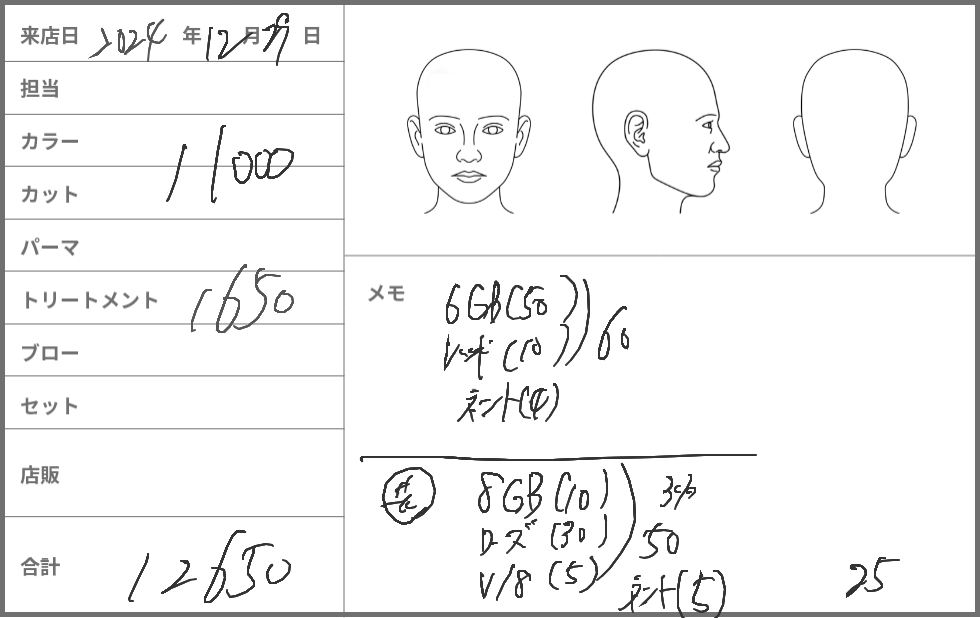 来店日 2024 年 12 月 日
担当
カラー
11000
カット
パーマ
トリートメント 1650
ブロー
セット
店販
合計 12650
メモ
6GB(50)
レッド(10) 60
ネント(4)
8GB(10) 3%
ローズ(30) 50
V/8(5)
ネント(5)
25